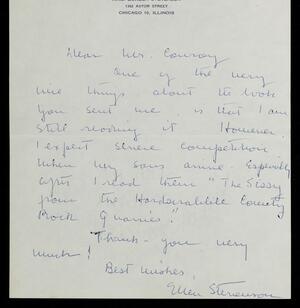 1362 ASTOR STREET
CHICAGO 10, ILLINOIS
Dear Mr. Conroy
One of the very
nice things about the book
you sent me, is that I am
still reading it. However
I expect severe competition
when my sons arrive - Especially
after I read them "The Sissy
from the Hardscrabble County
Rock Quarries."
Thank-you very
much!
Best wishes,
Ellen Stevenson